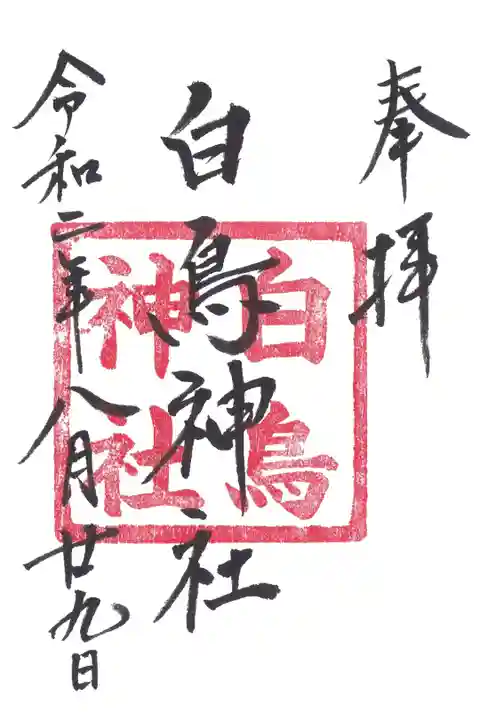 奉拝
白鳥神社
白鳥
神社
令和二年八月廿九日